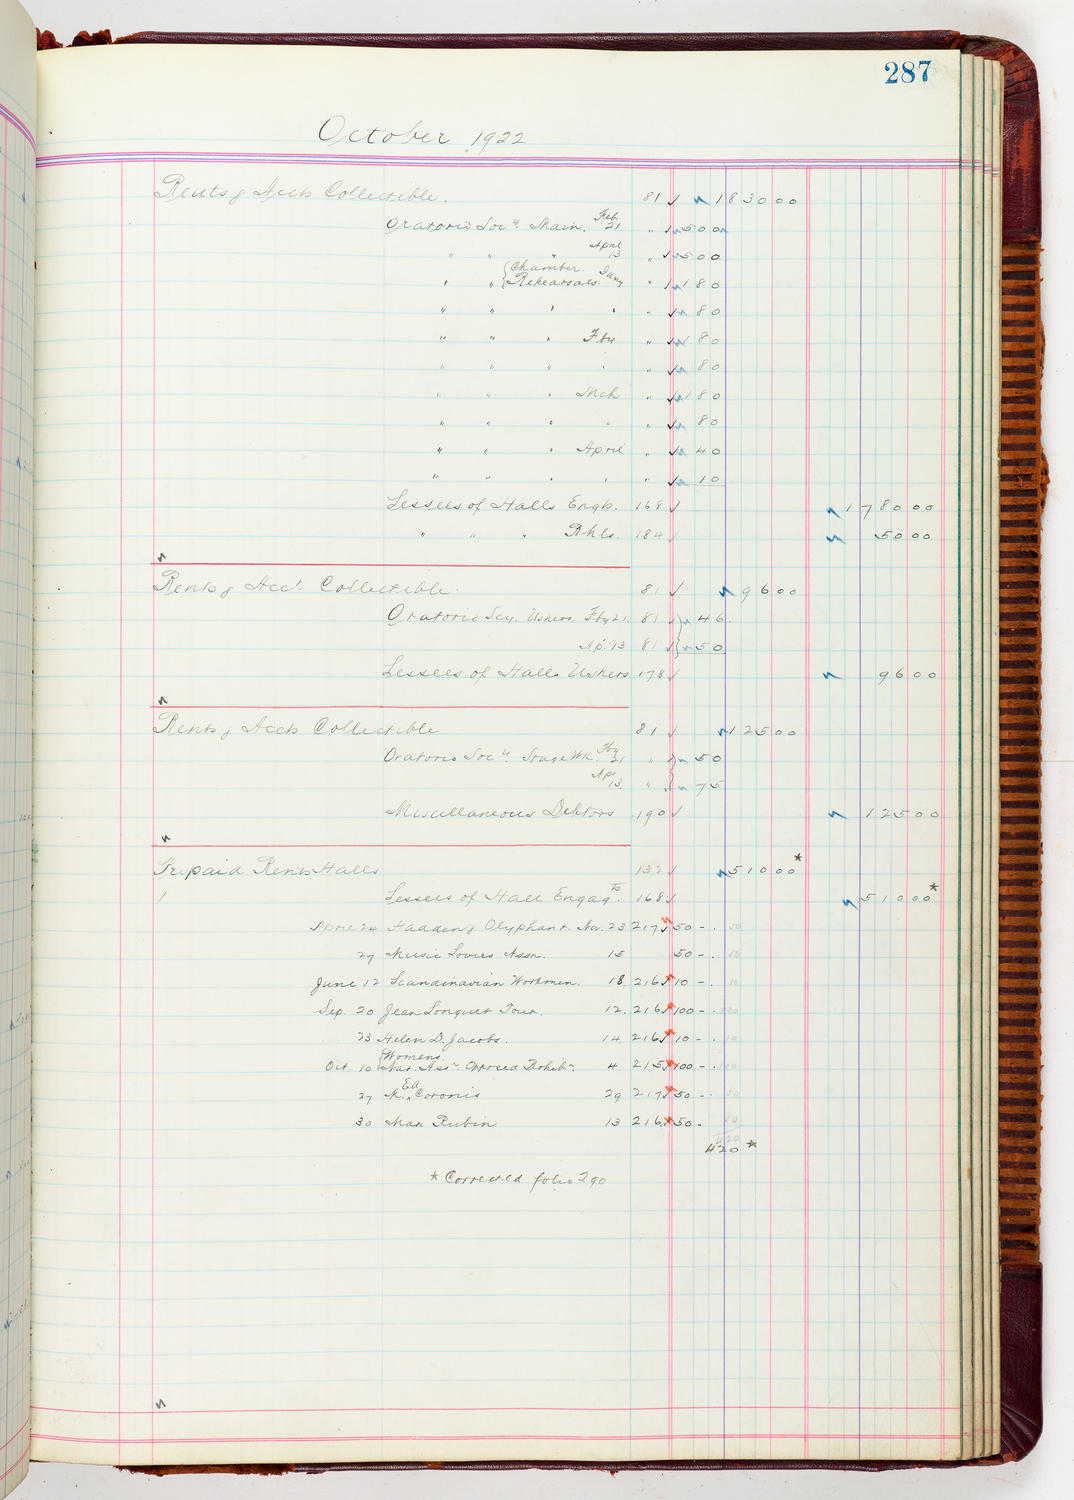 287
October 1922
Rents & Accts Collectible. 81 ✓ 1830 00
Oratorio Socy. Main. Feb. 21 " 500
" " " April 13 " 500
" " { Chamber Rehearsals. Jany " 80
" " " " " 80
" " " Fby " 80
" " " " " 80
" " " Mch " 80
" " " " " 80
" " " April " 40
" " " " " 10
Lessees of Halls Engts. 168 ✓ 1780 00
" " " Rhls. 184 50 00
Rents & Acct. Collectible. 81 ✓ 96 00
Oratorio Scy. Ushers. Fby 21. 81 46.
Ap. 13 81 50
Lessees of Halls Ushers 178 ✓ 96 00
Rents & Accts Collectible 81 ✓ 125 00
Oratorio Socy. Stage Wk. Fby 21 " 50
Apr 13. " 75
Miscellaneous Debtors 190 ✓ 125 00
Prepaid Rents Halls 132 ✓ 510 00 *
Lessees of Hall Engagts 168 ✓ 510 00 *
April 24 Hadden & Olyphant. Nov. 23 217 ✓ 50 - . 50
27 Music Lovers Assn. 15 50 - . 50
June 12 Scandinavian Workmen. 18. 216 ✓ 10 - 10
Sep. 20 Jean Longuet Tour. 12. 216 ✓ 100 - . 100
23 Helen D. Jacobs. 14 216 ✓ 10 - . 10
Oct. 10 { Womens Nat. Assn. Opposed Prohibn. 4 215 ✓ 100 - . 100
27 M. EA Coronis 29 217 ✓ 50 - . 50
30 Max Rubin 13 216 ✓ 50 - 50
420
420 *
* Corrected folio 290